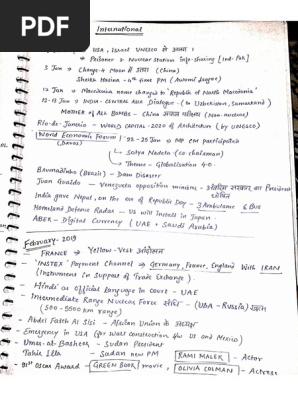 PDF
International
USA, Israel UNESCO से अलग।
→ Prisoner & Nuclear Station Info-sharing [Ind-Pak]
3 Jan → Change-4 Moon में उतरा (China)
Sheikh Hasina - 4th time PM (Awami League)
12 Jan → Macedonia name changed to 'Republic of North Macedonia'
12-13 Jan → INDIA-CENTRAL ASIA Dialogue - (to Uzbekistan, Samarkand)
MOTHER of ALL BOMBS - China (Non-nuclear)
Rio-de-Janeiro - WORLD CAPITAL-2020 of Architecture (by UNESCO)
World Economic Forum : 22-25 Jan में participated
(Davos)
↳ Satya Nadela (co-chairman)
↳ Theme - Globalisation 4.0
Bavmadinho (Brazil) - Dam Disaster
Juan Guaido - Venezuela opposition minister - सरकार का President घोषित
India gave Nepal, on the eve of Republic Day - 3 Ambulance 6 Bus
Homeland Defense Radar - US will Install in Japan.
ABER - Digital Currency (UAE + Saudi Arabia)
February - 2019
FRANCE → Yellow-Vest आंदोलन
'INSTEX' Payment Channel by Germany, France, England With IRAN
(Instrument in Support of Trade Exchange)
- Hindi as Official Language in Court - UAE
- Intermediate Range Nuclear Force संधि - (USA-Russia) खत्म
(500-5500 km range)
- Abdel Fateh Al Sisi - African Union के अध्यक्ष
- Emergency in USA (for Wall construction b/w US and Mexico)
- Umar-al-Basheer - Sudan President
Tahir Illa - Sudan new PM
RAMI MALEK - Actor
- 91st Oscar Award - GREEN BOOK movie, OLIVIA COLMAN - Actress